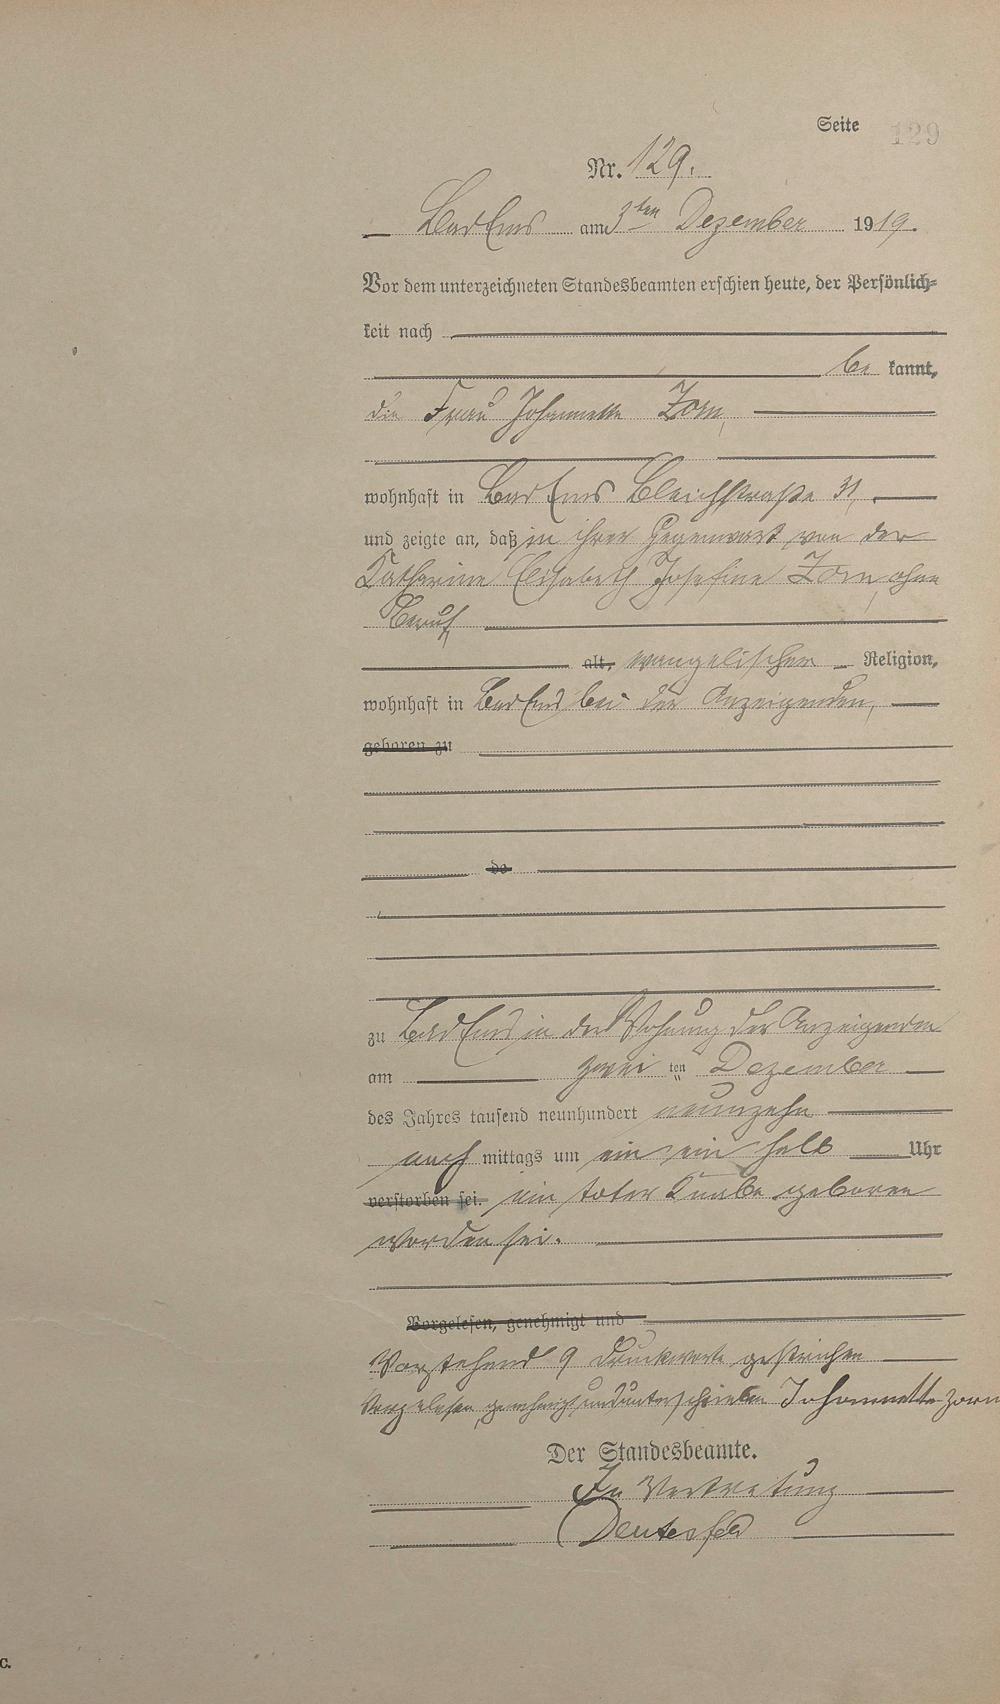 Seite 129
Nr. 129.
Bad Ems am 3ten Dezember 1919.
Vor dem unterzeichneten Standesbeamten erschien heute, der Persönlich-
keit nach
be kannt,
die Frau Johannette Zorn,
wohnhaft in Bad Ems Bleichstraße 31,
und zeigte an, daß in ihrer Gegenwart von der
Katharine Elisabeth Josefine Zorn, ohne
Beruf,
alt, evangelischer Religion,
wohnhaft in Bad Ems bei der Anzeigenden,
geboren zu
de
zu Bad Ems in der Wohnung der Anzeigenden
am zwei ten Dezember
des Jahres tausend neunhundert neunzehn
nach mittags um ein ein halb Uhr
verstorben sei. ein toter Knabe geboren
worden sei.
Vorgelesen, genehmigt und
Vorstehend 9 Druckworte gestrichen
Vorgelesen, genehmigt und unterschrieben Johannette Zorn
Der Standesbeamte.
In Vertretung
c.